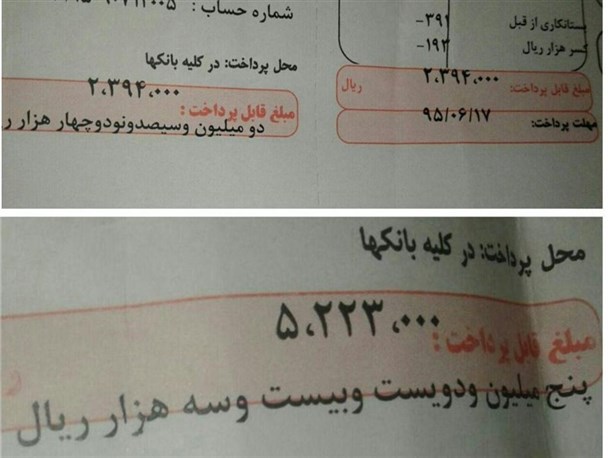 شماره حساب :
محل پرداخت: در کلیه بانکها
۲،۳۹۴،۰۰۰
مبلغ قابل پرداخت :
دو میلیون وسیصدونودوچهار هزار ر
بستانکاری از قبل ۳۹۱-
کسر هزار ریال ۱۹۲-
مبلغ قابل پرداخت: ۲،۳۹۴،۰۰۰ ریال
مهلت پرداخت: ۹۵/۰۶/۱۷
محل پرداخت: در کلیه بانکها
۵،۲۲۳،۰۰۰
مبلغ قابل پرداخت :
پنج میلیون ودویست وبیست وسه هزار ریال